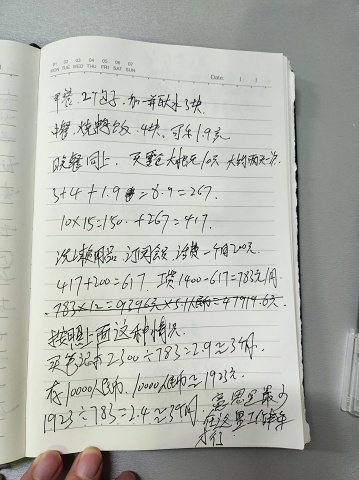 01 02 03 04 05 06 07
MON TUE WED THU FRI SAT SUN
Date: / /
早餐.2个包子,加一并饮水3块
中餐.烧鸭饭.4块,可乐1.9元
晚餐同上. 买重包大概花10元 大约两天一次.
3+4+1.9=8.9=267.
10×15=150.+267=417.
洗漱用品.订阅会员.话费一个月200元.
417+200=617.工资1400-617=783元/月.
783×12=9396元×5.1人民币=47919.6元.
按照上面这种情况.
买笔记本2300÷783=2.9≈3个月.
存10000人民币.10000人民币≈1923元.
1923÷783=2.4≈3个月.
意思是最少
在这里工作半年
才行